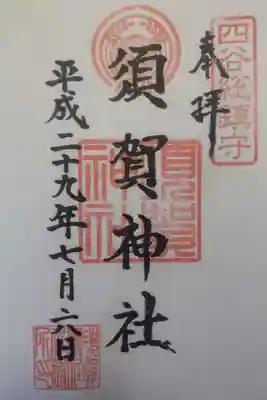 四谷総鎮守
奉拝
須賀神社
平成二十九年七月六日